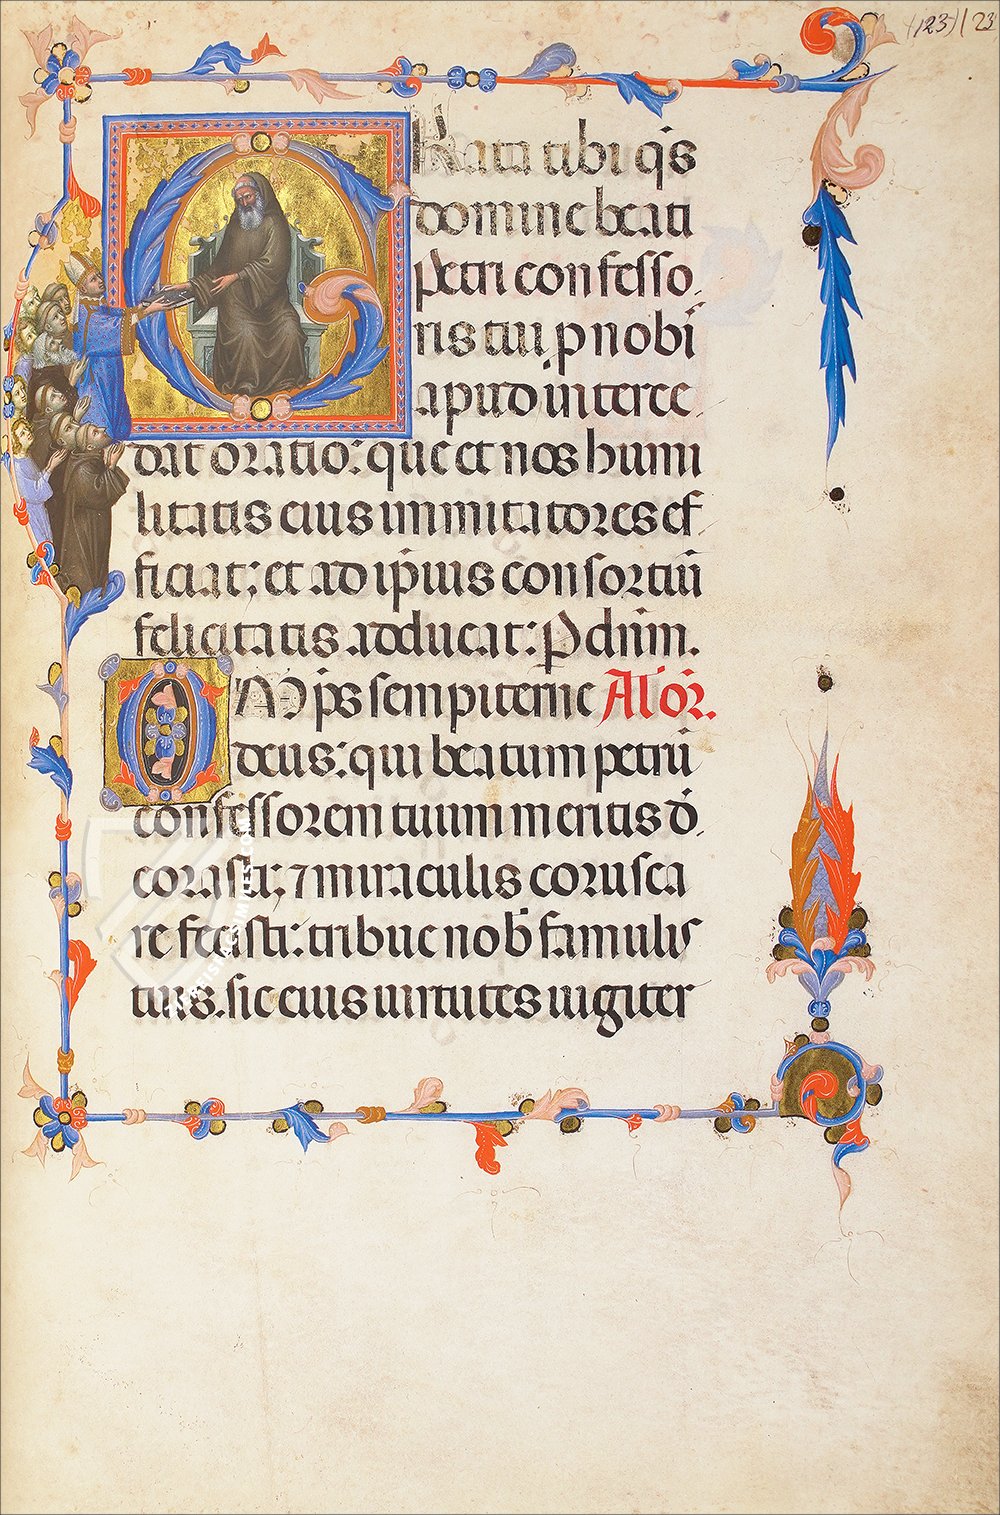 (123) 123
GRata tibi q̄s
domine beati
petri confesso
ris tui p nobi
apud interce
dat oratio: que et nos humi
litatis eius immitatores ef
ficiat; et ad ipius consortiū
felicitatis adducat: P dn̄m.
OMp̄s sempiterne Al' or̄.
deus: qui beatum petrū
confessorem tuum meritis d̄
corasti; ⁊ miraculis corusca
re fecisti: tribue nob̄ famulis
tuis. sic eius uirtutes iugiter